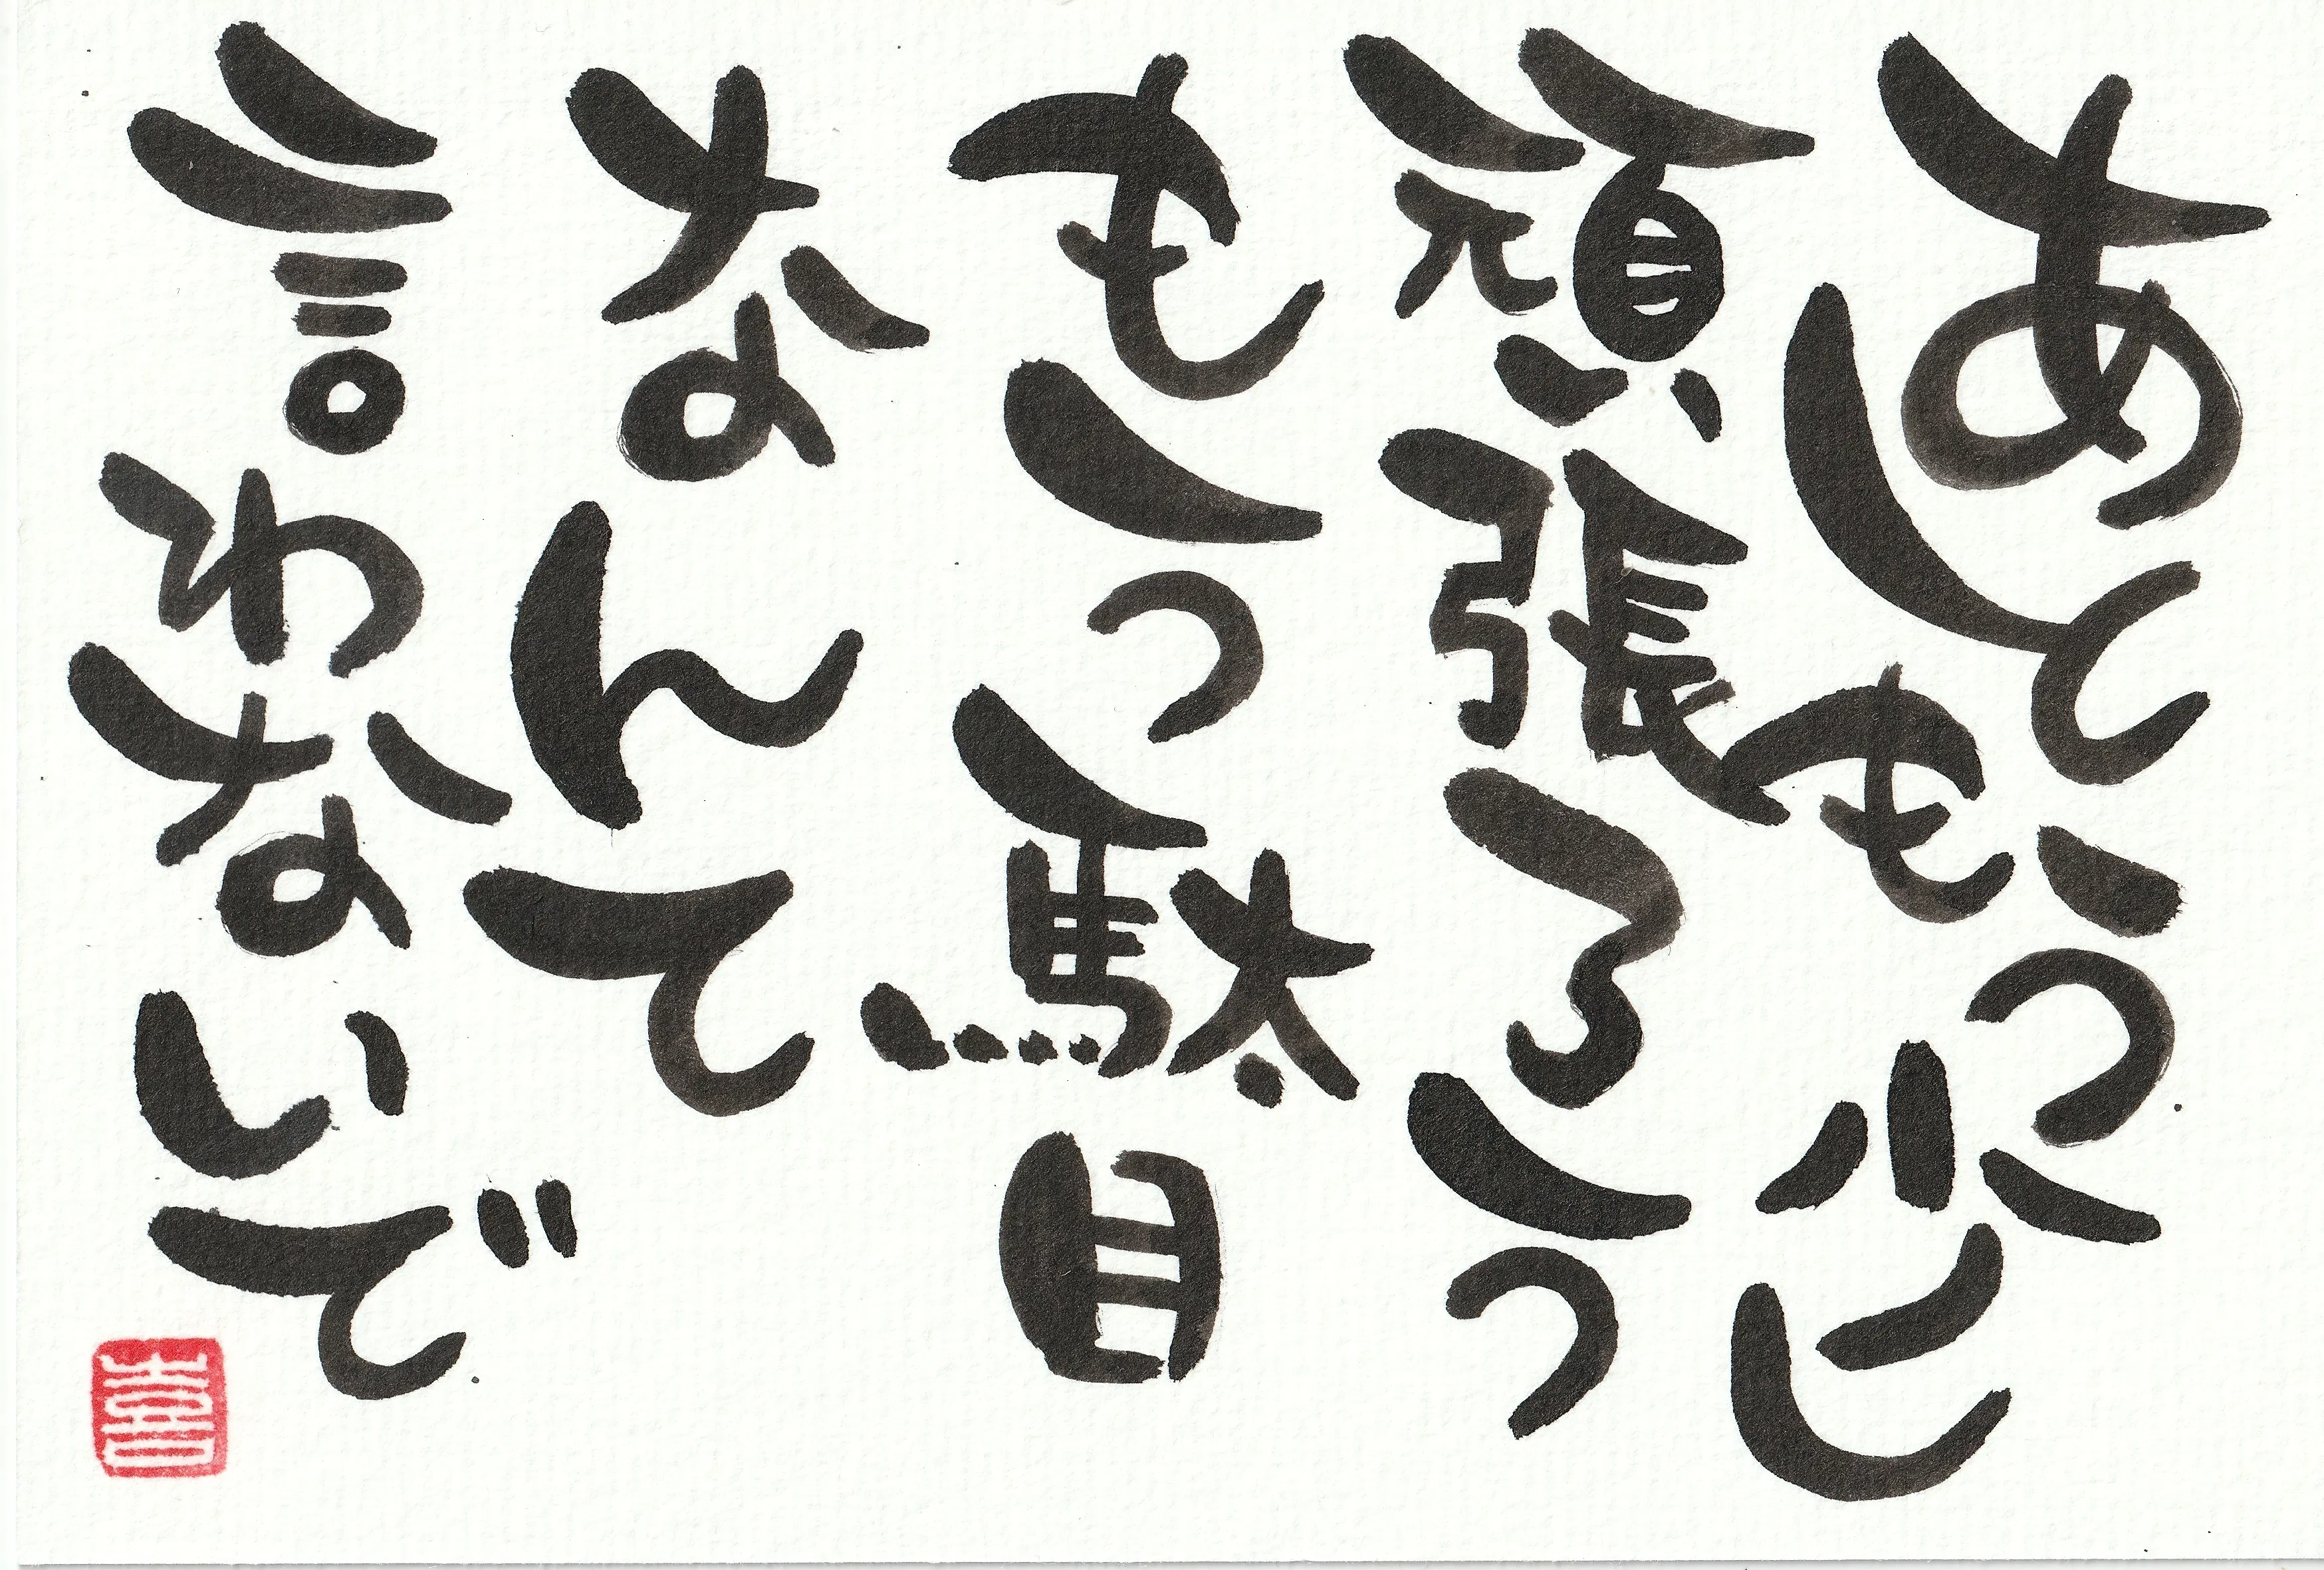 あともう少し
頑張ろう
もう駄目
なんて
言わないで